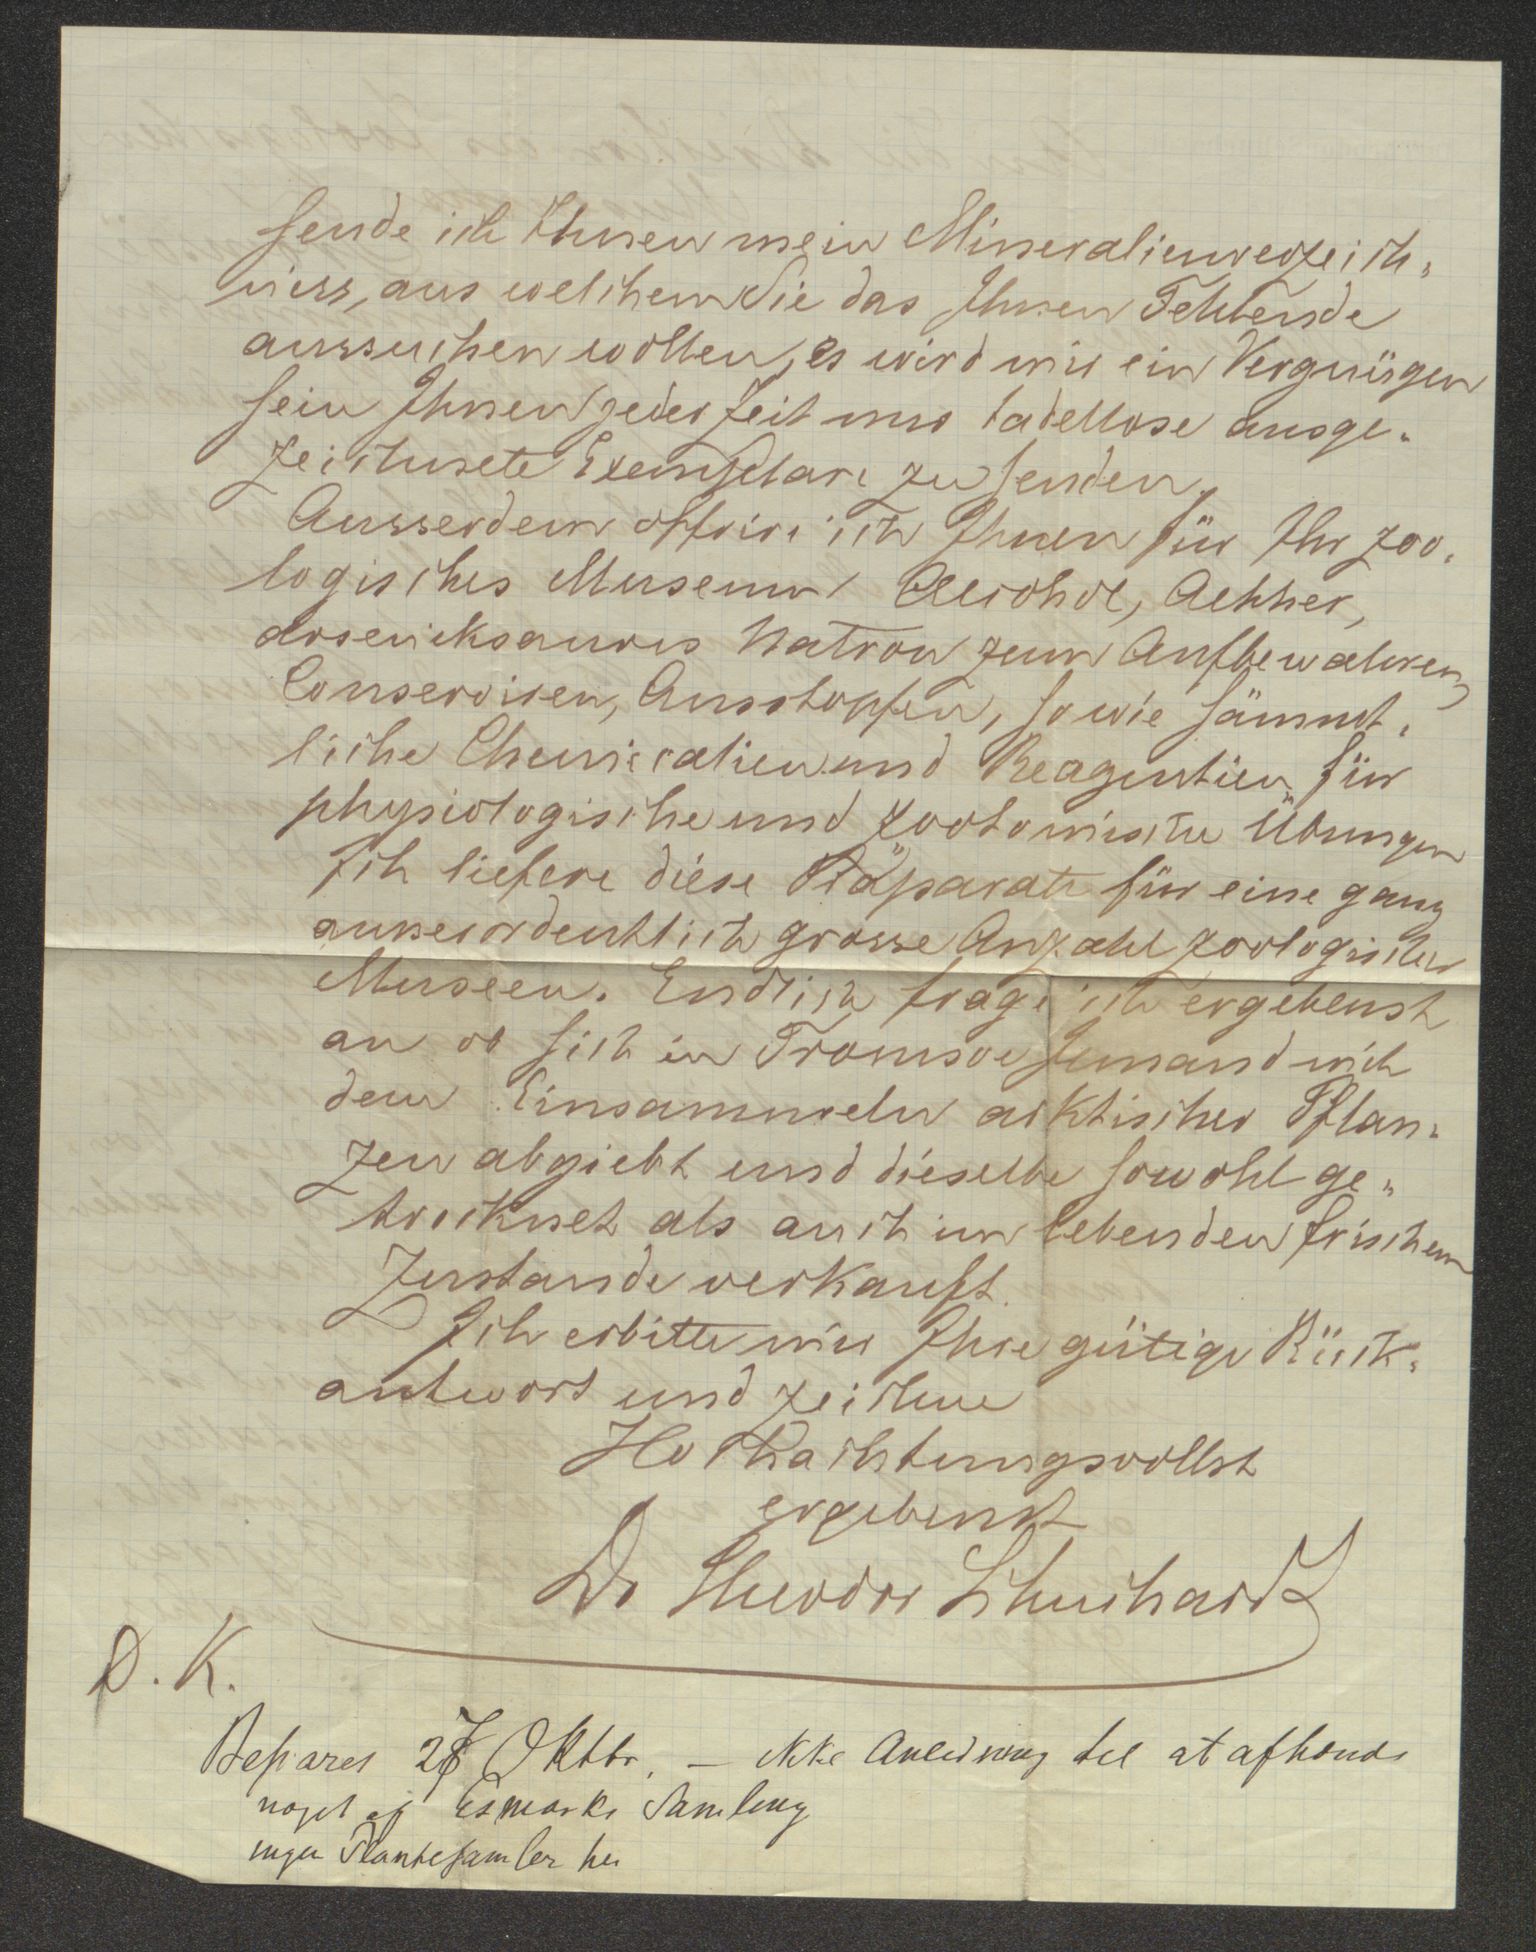 sende ich Ihnen mein Mineralienverzeich-
niss, aus welchem Sie das Ihnen Fehlende
aussuchen wollen, es wird mir ein Vergnügen
sein Ihnen jederzeit nur tadellose ausge-
zeichnete Exemplare zu senden.
Ausserdem offrire ich Ihnen für Ihr zoo-
logisches Museum Alcohol, Aether,
arseniksaures Natron zum Aufbewahren,
Conserviren, Ausstopfen, sowie sämmt-
liche Chemicalien und Reagentien für
physiologische und zootomische Übungen
Ich liefere diese Präparate für eine ganz
ausserordentlich grosse Anzahl zoologischer
Museen. Endlich frage ich ergebenst
an ob sich in Tromsoe Jemand mit
dem Einsammeln arktischer Pflan-
zen abgiebt und dieselbe sowohl ge-
trocknet als auch im lebenden frischem
Zustande verkauft.
Ich erbitte mir Ihre gütige Rück-
antwort und zeichne
Hochachtungsvollst
ergebenst
Dr Theodor Schuchardt
D. K.
Besvaret 27 Oktbr. – ikke Anledning til at afhænde
noget af Esmarks Samling
ingen Plantesamler her